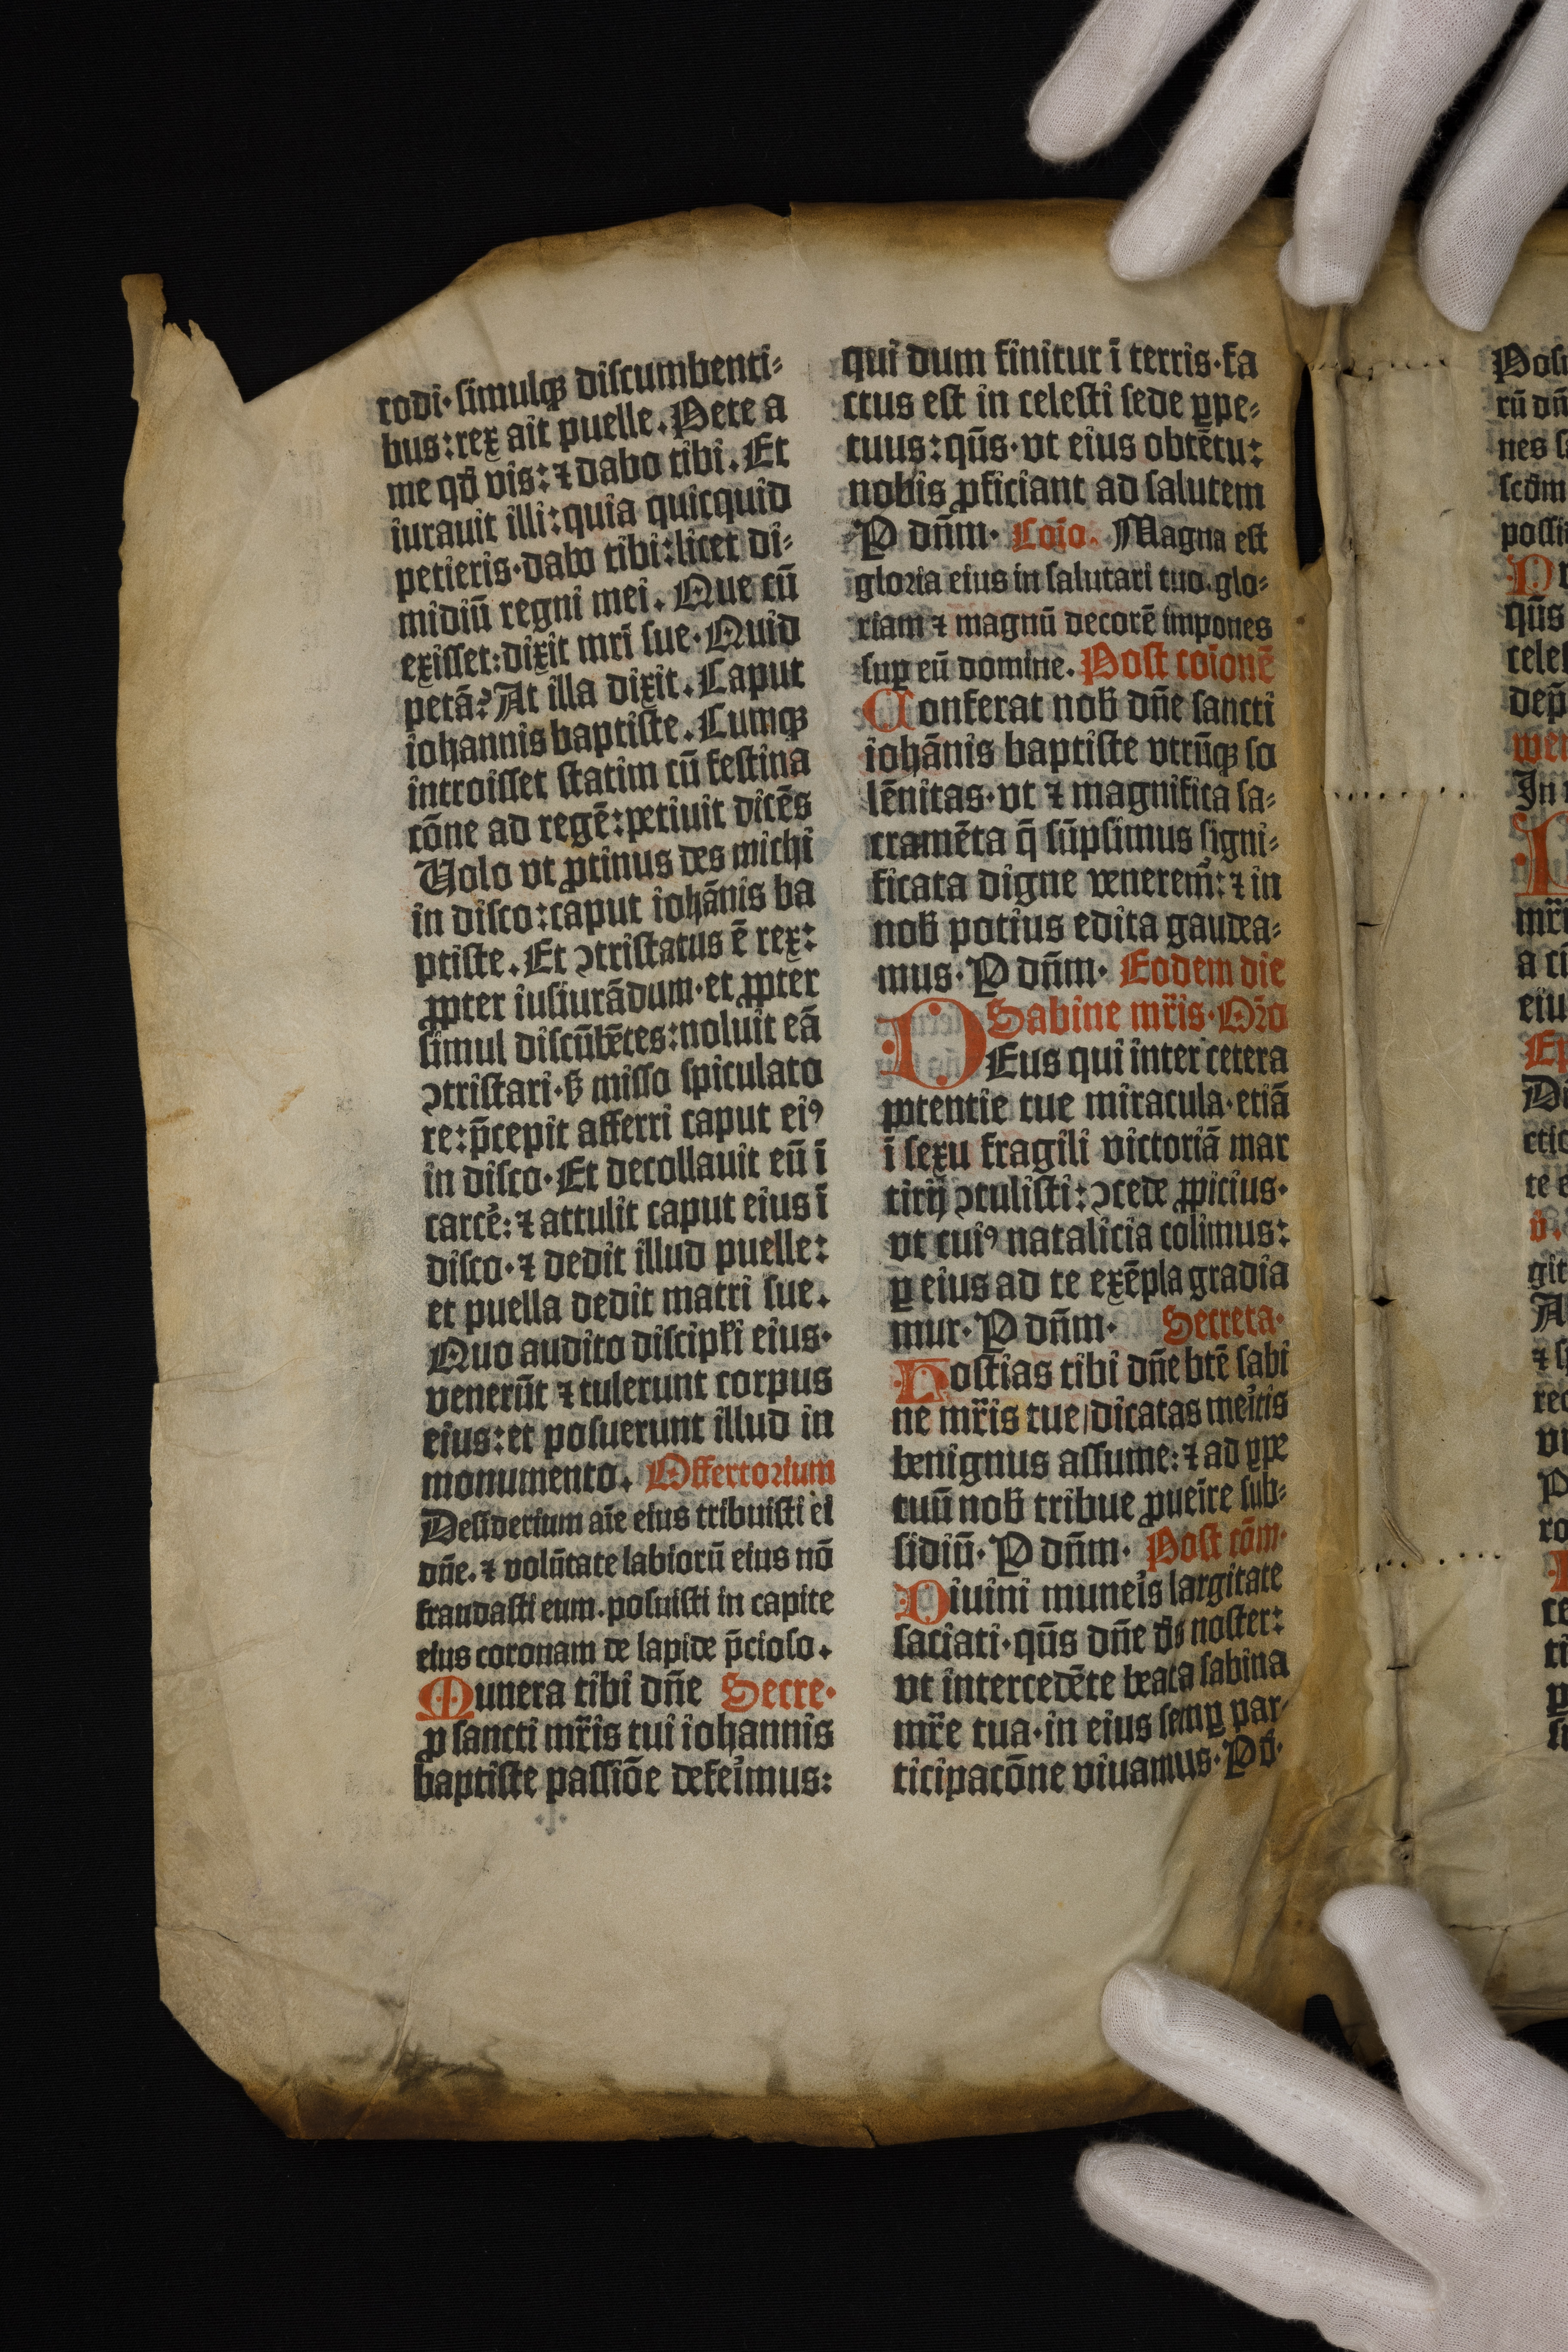 rodi·simulqꝫ discumbenti⸗
bus:rex ait puelle.Pete a
me qđ vis:⁊ dabo tibi.Et
iurauit illi:quia quicquid
petieris·dabo tibi:licet di⸗
midiū regni mei.Que cū
exisset:dixit mr̄i sue·Quid
petā?At illa dixit.Caput
iohannis baptiste.Cumqꝫ
introisset statim cū festina
cōne ad regē:petiuit dicēs
Uolo vt ꝓtinus des michi
in disco:caput iohānis ba
ptiste.Et ↄtristatus ē rex:
ꝓpter iusiurādum·et ꝓpter
simul discūbētes:noluit eā
ↄtristari·ß misso spiculato
re:p̄cepit afferri caput eiꝰ
in disco·Et decollauit eū ī
carce᷑:⁊ attulit caput eius ī
disco·⁊ dedit illud puelle:
et puella dedit matri sue.
Quo audito discipƚi eius·
venerūt ⁊ tulerunt corpus
eius:et posuerunt illud in
monumento. Offertorium
Desiderium aīe eius tribuisti ei
dn̄e.⁊ volūtate labiorū eius nō
fraudasti eum.posuisti in capite
eius coronam de lapide p̄cioso.
Munera tibi dn̄e Secre·
ꝓ sancti mr̄is tui iohannis
baptiste passiōe defei᷑mus:
qui dum finitur ī terris·fa
ctus est in celesti sede ꝑpe⸗
tuus:qūs·vt eius obtētu:
nobis ꝓficiant ad salutem
P dn̄m· Coīo. Magna est
gloria eius in salutari tuo.glo⸗
riam ⁊ magnū decorē impones
suꝑ eū domine. Post coīonē
Conferat nob̄ dn̄e sancti
iohānis baptiste vtrūqꝫ so
lēnitas·vt ⁊ magnifica sa⸗
cramēta q̄ sūpsimus signi⸗
ficata digne venerem᷑:⁊ in
nob̄ potius edita gaudea⸗
mus·P dn̄m· Eodem die
Sabine mr̄is·Or̄o
DEus qui inter cetera
potentie tue miracula·etiā
ī sexu fragili victoriā mar
tirij ↄtulisti:ↄcede ꝓpicius·
vt cuiꝰ natalicia colimus:
ꝑ eius ad te exēpla gradia
mur·P dn̄m· Secreta·
Hostias tibi dn̄e btē sabi
ne mr̄is tue/dicatas mei᷑tis
benignus assume:⁊ ad ꝑpe
tuū nob̄ tribue ꝓuei᷑re sub⸗
sidiū·P dn̄m· Post cōm·
Diuini munei᷑s largitate
saciati·qūs dn̄e d̄s noster:
vt intercedēte beata sabina
mr̄e tua·in eius semꝑ par⸗
ticipacōne viuamus·P d̄·